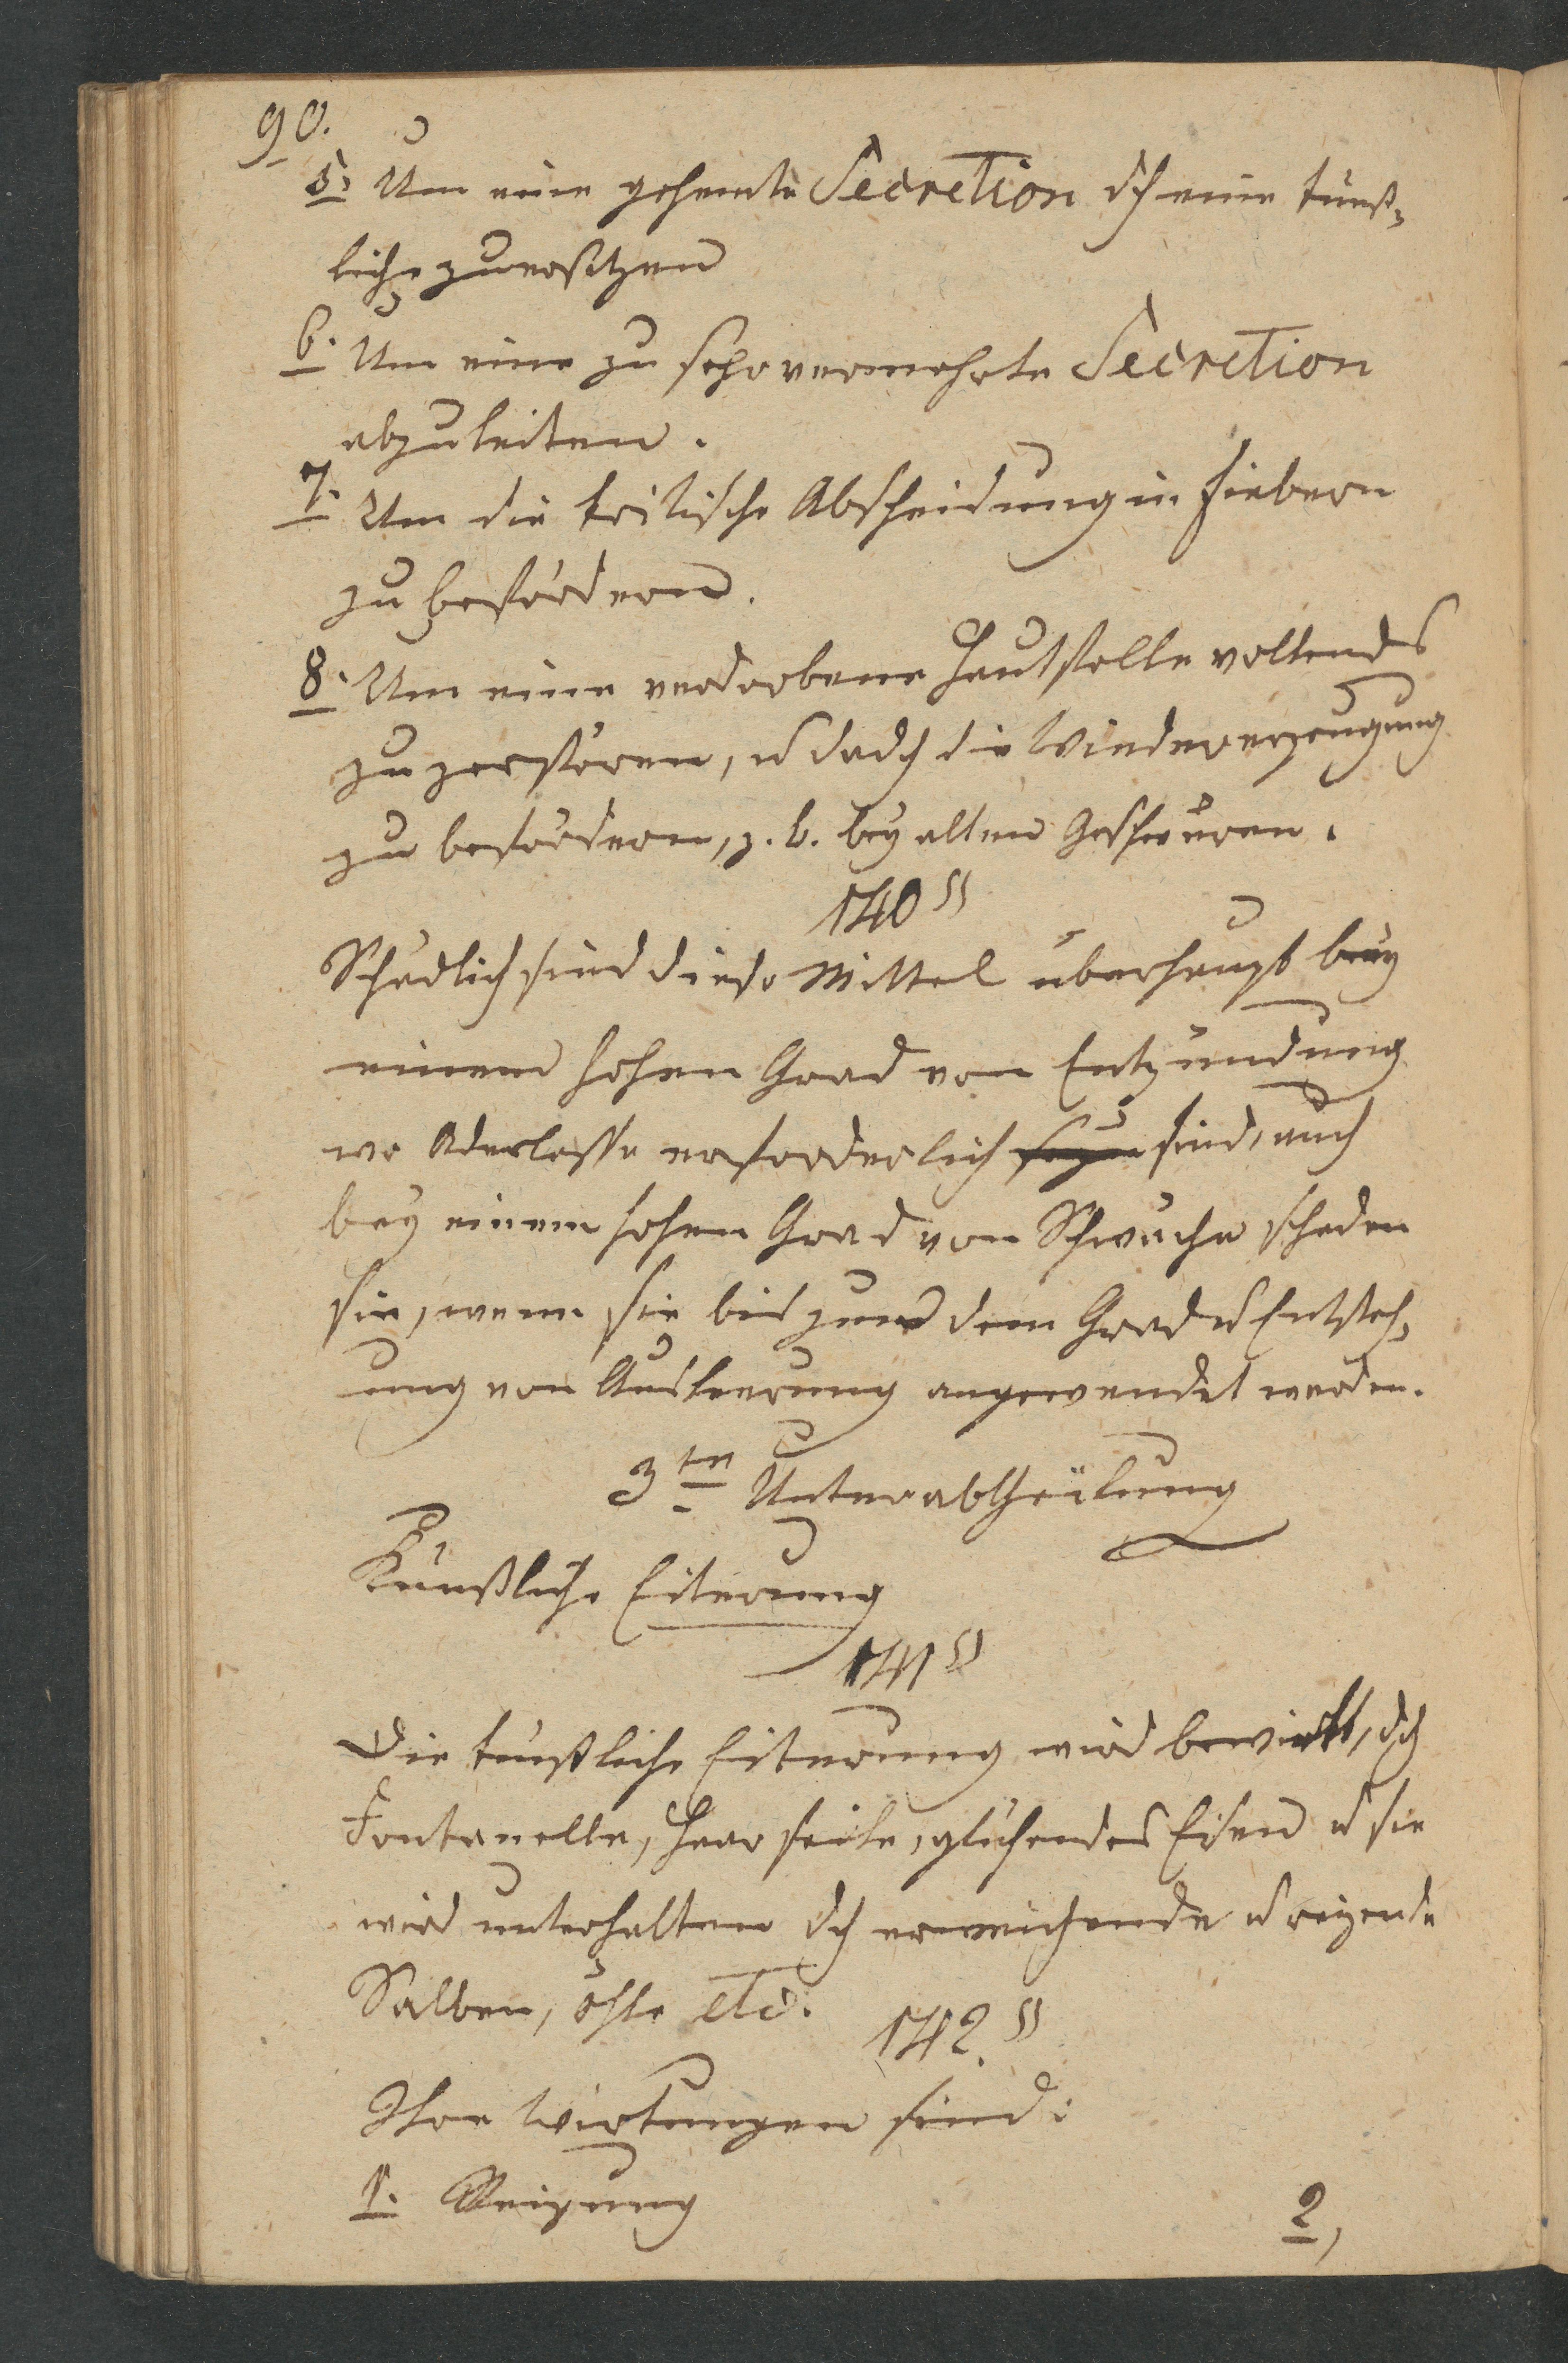 90.
5. Um eine gehemte Secretion dch eine künst-
liche zuersetzen
6. Um eine zu sehr vermehrte Secretion
abzuleiten.
7. Um die kritische Abscheidung in Fiebern
zu befördern.
8. Um eine verdorbene Hautstelle vollends
zu zerstören, u dadch die Wiedererzeugung
zu befördern, z. b. bey alten Geschwüren.
140 §
Schädlich sind diese Mittel überhaupt bey
einem hohen Grad von Entzündung
wo Aderlasse erforderlich seyn sind, auch
bey einem hohen Grad von Schwäche schaden
sie, wenn sie bis zum dem Grad d Entsteh-
ung von Ausleerung angewendet werden.
3te Unterabtheilung
Künstliche Eiterung
141 §
Die künstliche Eiterung wird bewirkt, dch
Fontanelle, Haarseile, glühendes Eisen u sie
wird unterhalten dch erweichende u reizende
Salben, öhle etc.
142. §
Ihre Wirkungen sind:
1. Reizung
2,